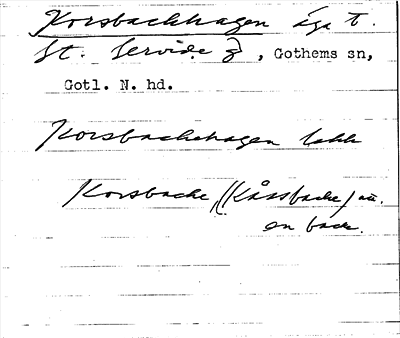 Korsbackhagen äga t.
St. Tervide 3, Gothems sn,
Gotl. N. hd.
Korsbackehagen lokk
Korsbacke (Kåssbacke) av.
en backe.